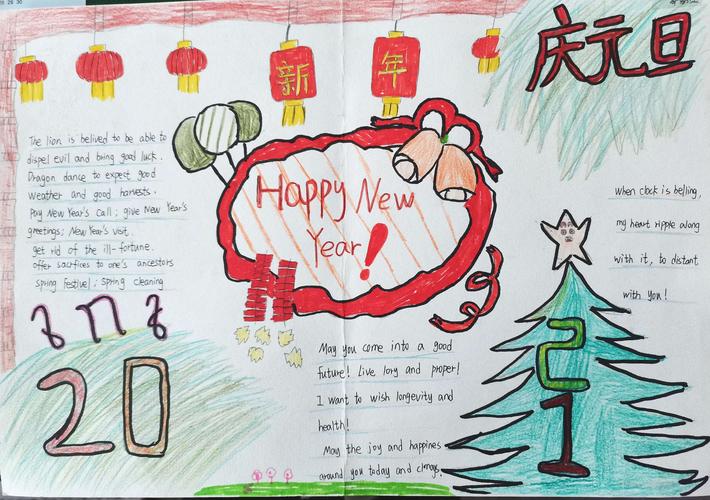 新年
庆元旦
The lion is belived to be able to
dispel evil and bring good luck.
Dragon dance to expect good
weather and good harvests.
Pay New Year's call; give New Year's
greetings; New Year's visit.
get rid of the ill-fortune.
offer sacrifices to one's ancestors
spring festivel; spring cleaning
Happy New
Year!
when clock is belling,
my heart ripple along
with it, to distant
with you!
20
21
May you come into a good
future! Live lory and proper!
I want to wish longevity and
health!
May the joy and happines
around you today and